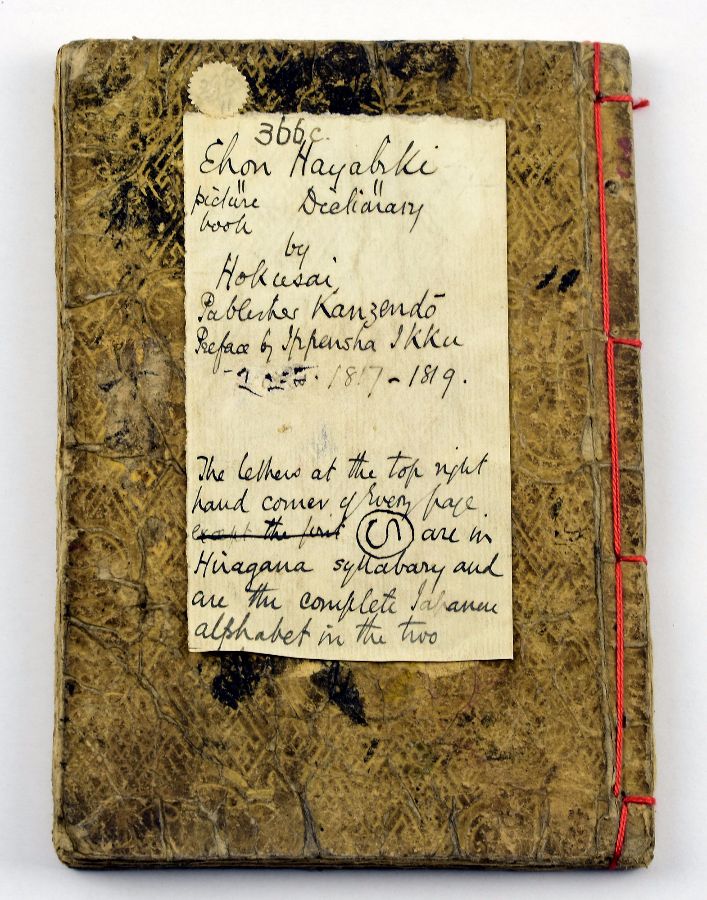 366c
Ehon Hayabiki
picture Dictionary
book
by
Hokusai
Publisher Kanzendō
Preface by Ippensha Ikku
1817-1819.
The letters at the top right
hand corner of Every page
except the first い are in
Hiragana syllabary and
are the complete Japanese
alphabet in the two